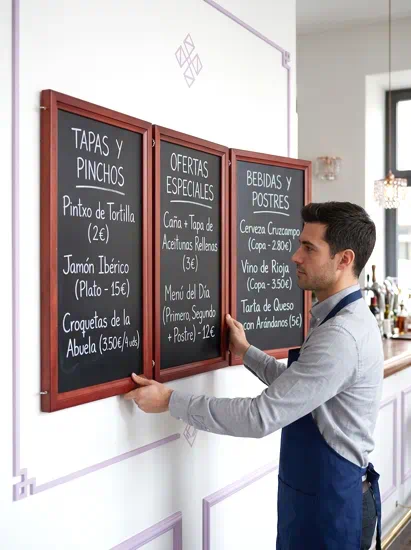 TAPAS Y
PINCHOS
Pintxo de Tortilla
(2€)
Jamón Ibérico
(Plato - 15€)
Croquetas de la
Abuela (3.50€/4 uds)
OFERTAS
ESPECIALES
Caña + Tapa de
Aceitunas Rellenas
(3€)
Menú del Día
(Primero, Segundo
+ Postre) - 12€
BEBIDAS Y
POSTRES
Cerveza Cruzcampo
(Copa - 2.80€)
Vino de Rioja
(Copa - 3.50€)
Tarta de Queso
con Arándanos (5€)